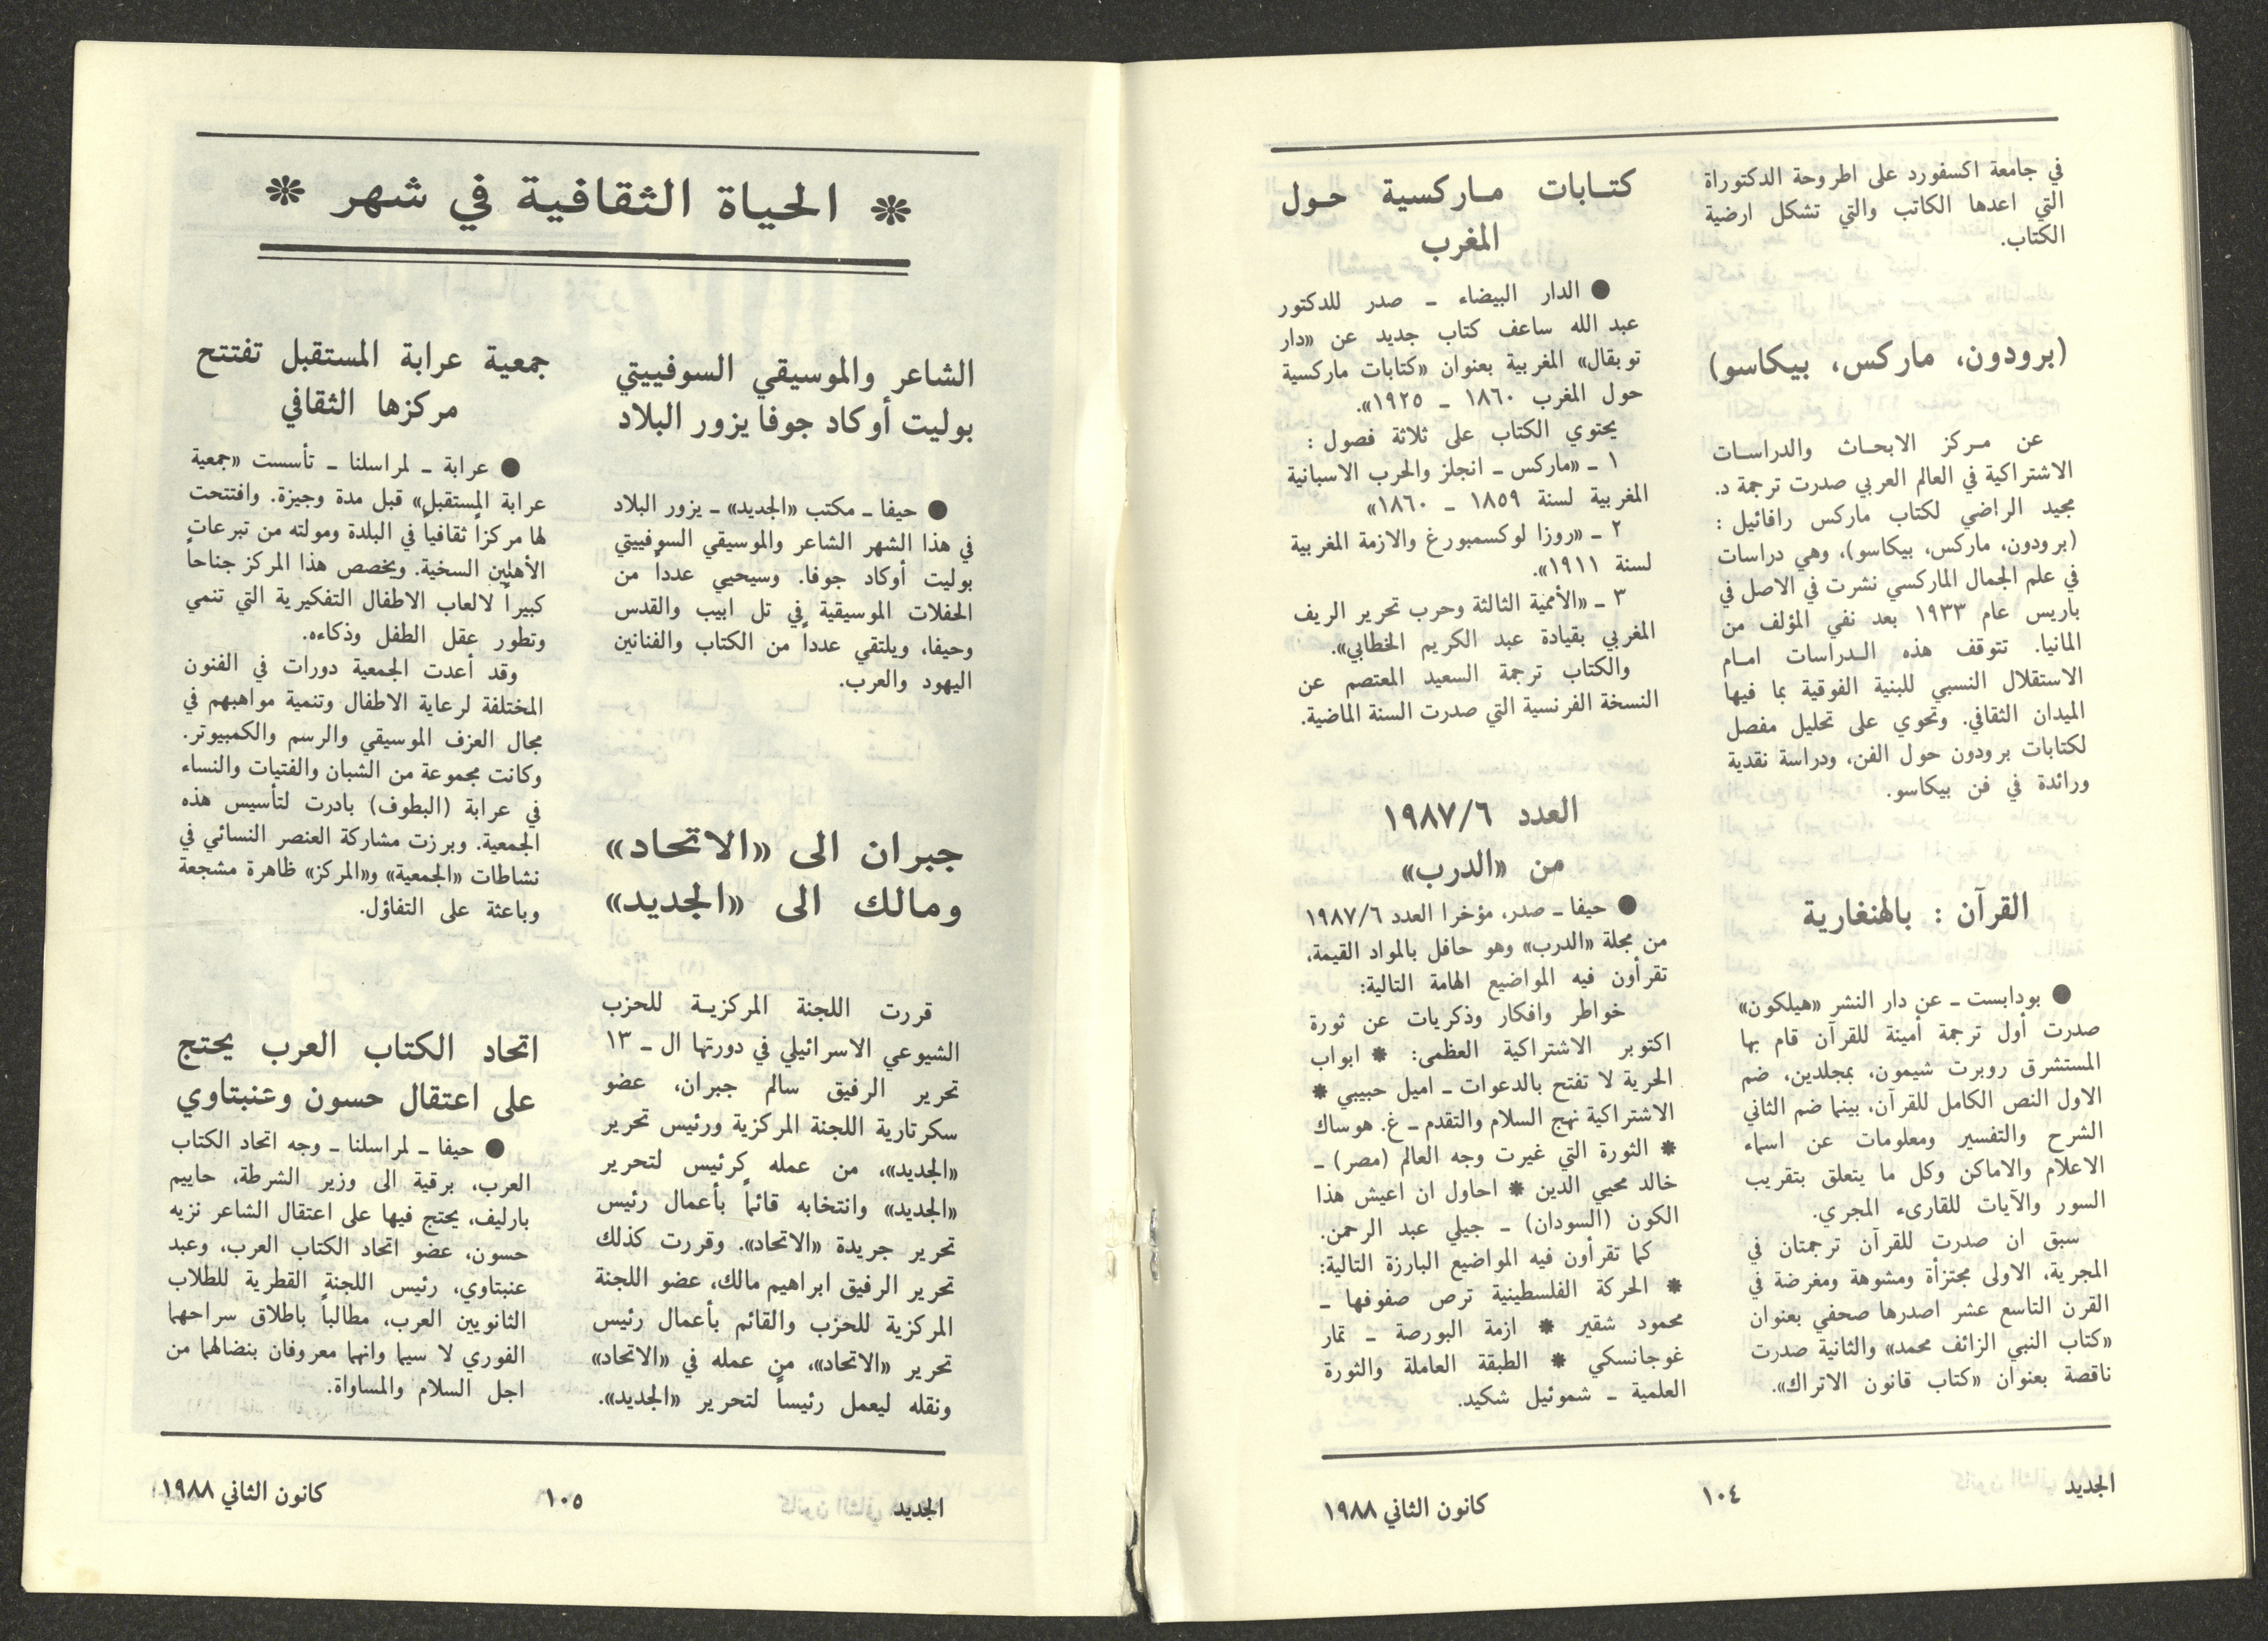 في جامعة اكسفورد على اطروحة الدكتوراة
التي اعدها الكاتب والتي تشكل ارضية
الكتاب.
(برودون، ماركس، بيكاسو)
عن مركز الابحاث والدراسات
الاشتراكية في العالم العربي صدرت ترجمة د.
مجيد الراضي لكتاب ماركس رافائيل :
(برودون، ماركس، بيكاسو)، وهي دراسات
في علم الجمال الماركسي نشرت في الاصل في
باريس عام ١٩٣٣ بعد نفي المؤلف من
المانيا. تتوقف هذه الدراسات امام
الاستقلال النسبي للبنية الفوقية بما فيها
الميدان الثقافي. وتحوي على تحليل مفصل
لكتابات برودون حول الفن، ودراسة نقدية
ورائدة في فن بيكاسو.
القرآن : بالهنغارية
● بودابست ـ عن دار النشر «هيلكون»
صدرت أول ترجمة أمينة للقرآن قام بها
المستشرق روبرت شيمون، بمجلدين، ضم
الاول النص الكامل للقرآن، بينما ضم الثاني
الشرح والتفسير ومعلومات عن اسماء
الاعلام والاماكن وكل ما يتعلق بتقريب
السور والآيات للقارىء المجري.
سبق ان صدرت للقرآن ترجمتان في
المجرية، الاولى مجتزأة ومشوهة ومغرضة في
القرن التاسع عشر اصدرها صحفي بعنوان
«كتاب النبي الزائف محمد» والثانية صدرت
ناقصة بعنوان «كتاب قانون الاتراك».
كتابات ماركسية حول
المغرب
● الدار البيضاء ـ صدر للدكتور
عبد الله ساعف كتاب جديد عن «دار
توبقال» المغربية بعنوان «كتابات ماركسية
حول المغرب ١٨٦٠ ـ ١٩٢٥».
يحتوي الكتاب على ثلاثة فصول :
١ ـ «ماركس ـ انجلز والحرب الاسبانية
المغربية لسنة ١٨٥٩ ـ ١٨٦٠»
٢ ـ «روزا لوكسمبورغ والازمة المغربية
لسنة ١٩١١».
٣ ـ «الأممية الثالثة وحرب تحرير الريف
المغربي بقيادة عبد الكريم الخطابي».
والكتاب ترجمة السعيد المعتصم عن
النسخة الفرنسية التي صدرت السنة الماضية.
العدد ١٩٨٧/٦
من «الدرب»
● حيفا ـ صدر، مؤخرا العدد ١٩٨٧/٦
من مجلة «الدرب» وهو حافل بالمواد القيمة،
تقرأون فيه المواضيع الهامة التالية:
خواطر وافكار وذكريات عن ثورة
اكتوبر الاشتراكية العظمى: * ابواب
الحرية لا تفتح بالدعوات ـ اميل حبيبي *
الاشتراكية نهج السلام والتقدم ـ غ. هوساك
* الثورة التي غيرت وجه العالم (مصر) ـ
خالد محيي الدين * احاول ان اعيش هذا
الكون (السودان) ـ جيلي عبد الرحمن.
كما تقرأون فيه المواضيع البارزة التالية:
* الحركة الفلسطينية ترص صفوفها ـ
محمود شقير * ازمة البورصة ـ تمار
غوجانسكي * الطبقة العاملة والثورة
العلمية ـ شموئيل شكيد.
الجديد
١٠٤
كانون الثاني ١٩٨٨
* الحياة الثقافية في شهر *
الشاعر والموسيقي السوفييتي
بوليت أوكاد جوفا يزور البلاد
● حيفا ـ مكتب «الجديد» ـ يزور البلاد
في هذا الشهر الشاعر والموسيقي السوفييتي
بوليت أوكاد جوفا. وسيحيي عدداً من
الحفلات الموسيقية في تل ابيب والقدس
وحيفا، ويلتقي عدداً من الكتاب والفنانين
اليهود والعرب.
جبران الى «الاتحاد»
ومالك الى «الجديد»
قررت اللجنة المركزية للحزب
الشيوعي الاسرائيلي في دورتها ال ـ ١٣
تحرير الرفيق سالم جبران، عضو
سكرتارية اللجنة المركزية ورئيس تحرير
«الجديد»، من عمله كرئيس لتحرير
«الجديد» وانتخابه قائماً بأعمال رئيس
تحرير جريدة «الاتحاد». وقررت كذلك
تحرير الرفيق ابراهيم مالك، عضو اللجنة
المركزية للحزب والقائم بأعمال رئيس
تحرير «الاتحاد»، من عمله في «الاتحاد»
ونقله ليعمل رئيساً لتحرير «الجديد».
جمعية عرابة المستقبل تفتتح
مركزها الثقافي
● عرابة ـ لمراسلنا ـ تأسست «جمعية
عرابة المستقبل» قبل مدة وجيزة. وافتتحت
لها مركزاً ثقافياً في البلدة ومولته من تبرعات
الأهلين السخية. ويخصص هذا المركز جناحاً
كبيراً لالعاب الاطفال التفكيرية التي تنمي
وتطور عقل الطفل وذكاءه.
وقد أعدت الجمعية دورات في الفنون
المختلفة لرعاية الاطفال وتنمية مواهبهم في
مجال العزف الموسيقي والرسم والكمبيوتر.
وكانت مجموعة من الشبان والفتيات والنساء
في عرابة (البطوف) بادرت لتأسيس هذه
الجمعية. وبرزت مشاركة العنصر النسائي في
نشاطات «الجمعية» و«المركز» ظاهرة مشجعة
وباعثة على التفاؤل.
اتحاد الكتاب العرب يحتج
على اعتقال حسون وعنبتاوي
● حيفا ـ لمراسلنا ـ وجه اتحاد الكتاب
العرب، برقية الى وزير الشرطة، حاييم
بارليف، يحتج فيها على اعتقال الشاعر نزيه
حسون، عضو اتحاد الكتاب العرب، وعبد
عنبتاوي، رئيس اللجنة القطرية للطلاب
الثانويين العرب، مطالباً باطلاق سراحهما
الفوري لا سيما وانهما معروفان بنضالهما من
اجل السلام والمساواة.
الجديد
١٠٥
كانون الثاني ١٩٨٨